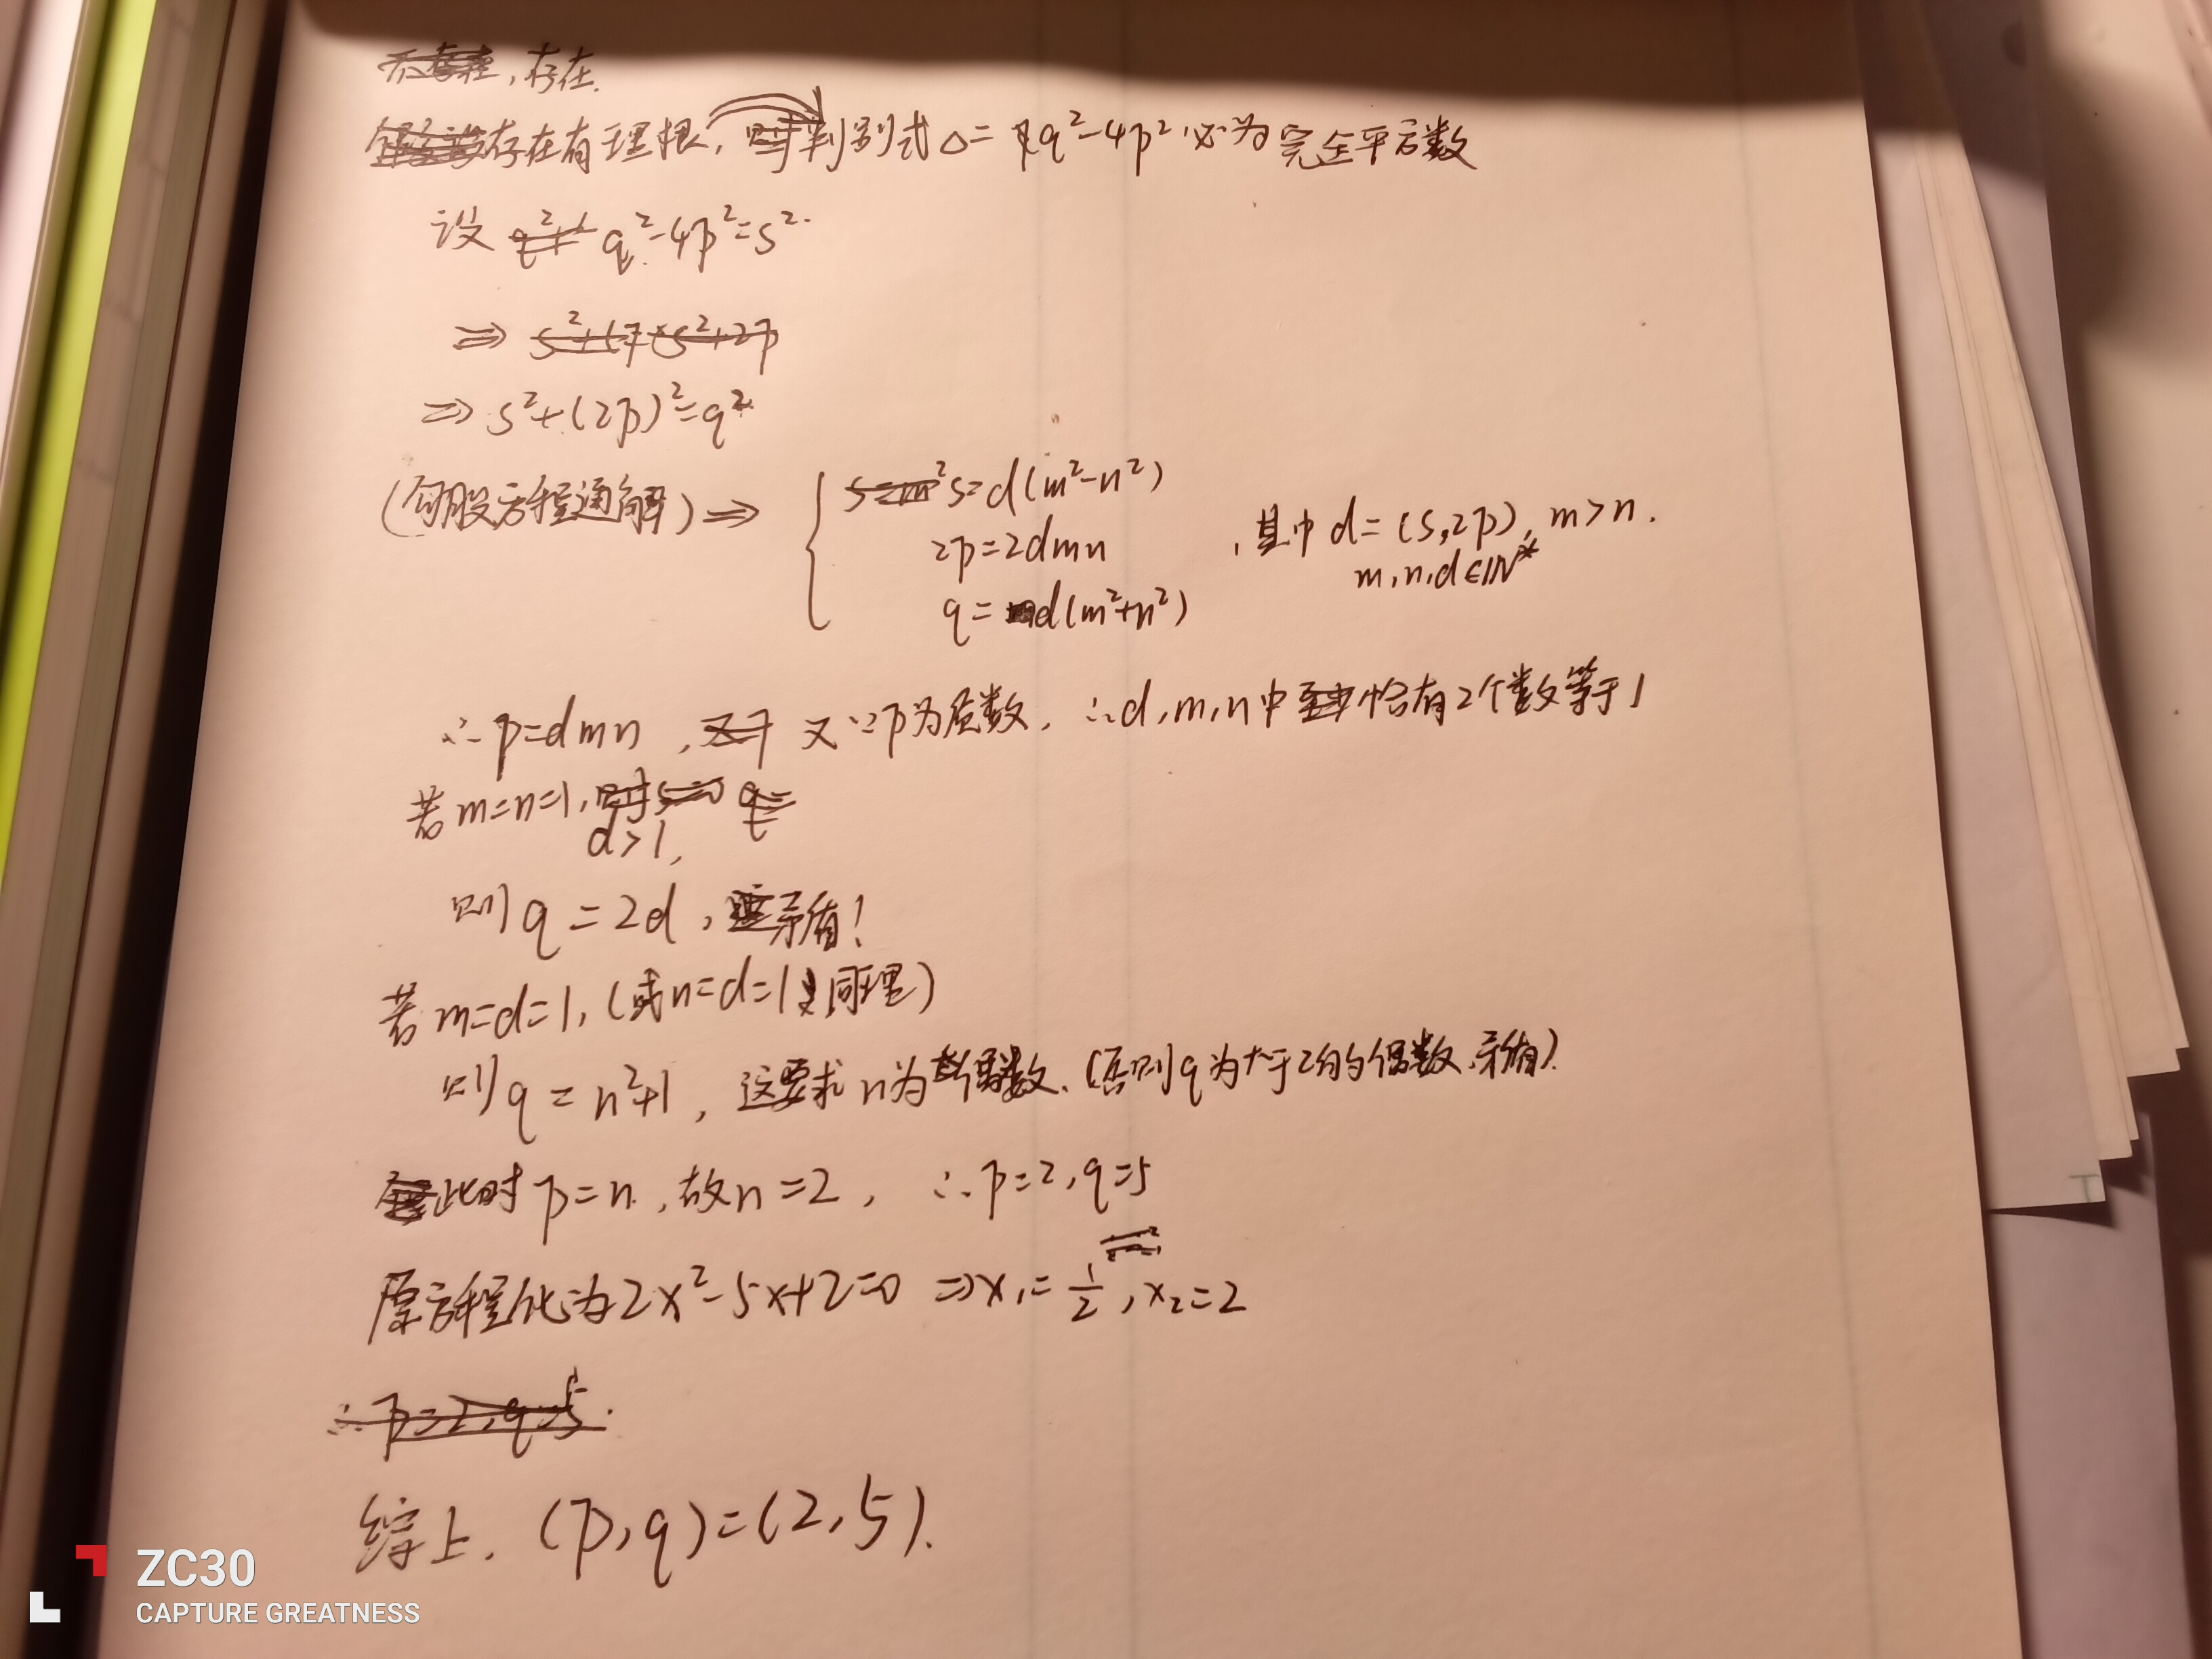 存在.
存在有理根, 判别式 Δ= q²-4p² 必为完全平方数
设 q²-4p²=s².
⇒
⇒ s²+(2p)²=q².
(勾股方程通解) ⇒ { s=d(m²-n²)
2p=2dmn , 其中 d=(s,2p), m>n.
m,n,d∈ℕ*
q=d(m²+n²)
∴p=dmn , 又∵p为质数, ∴d,m,n中恰有2个数等于1
若m=n=1,
d>1,
则 q=2d, 矛盾!
若m=d=1, (或n=d=1同理)
则 q=n²+1, 这要求n为偶数. (否则q为大于2的偶数,矛盾).
此时 p=n, 故n=2, ∴p=2,q=5
原方程化为2x²-5x+2=0 ⇒x₁=1/2, x₂=2
综上, (p,q)=(2,5).
ZC30
CAPTURE GREATNESS